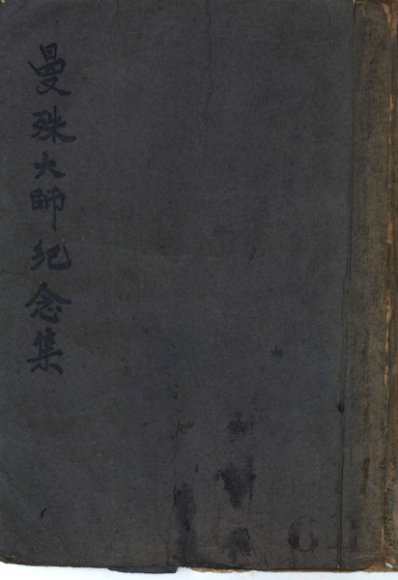 曼殊大師纪念集